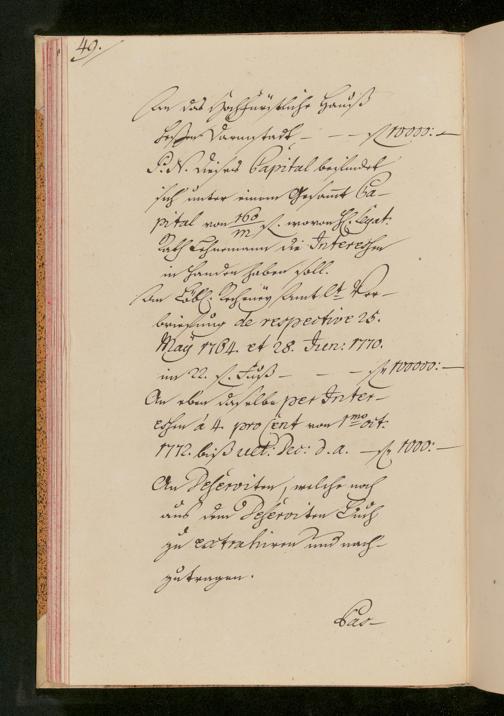 49.
An das Hochfürstliche Hauß
Hessen Darmstadt - - - fl 10000: -
P.N. dieses Capital befindet
sich unter einem Gesamt Ca-
pital von 160/m fl. wovon H. Legat:
Rath Lehnemann die Interessen
in Handen haben soll.
An Löbl. Recheney Amt lt Ver-
briefung de respective 25.
May 1764. et 28. Jun: 1770.
im 22. fl. Fuß - - - fl 100000: -
An eben daselbe per Inter-
essen a 4. pro Cent von 1mo oct:
1772. biß ult: Dec: d. a. - fl 1000: -
An Deserviten, welche noch
aus dem Deserviten Buch
zu extrahiren und nach-
zutragen.
Cas-